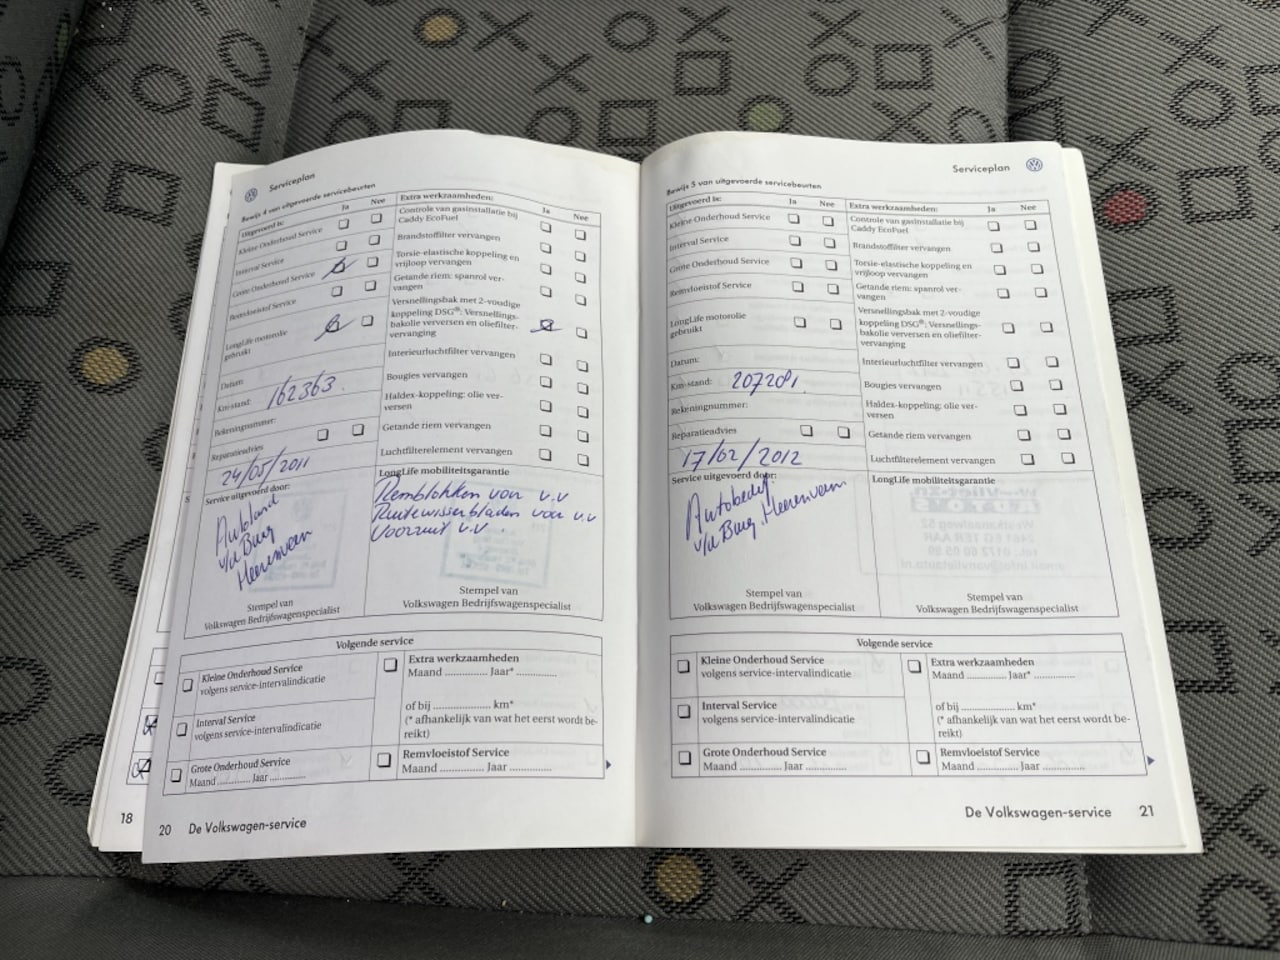 Serviceplan
Bewijs 4 van uitgevoerde servicebeurten
Uitgevoerd is:
Ja
Nee
Kleine Onderhoud Service
Interval Service
Grote Onderhoud Service
Remvloeistof Service
LongLife motorolie
gebruikt
Datum:
Km-stand: 162363.
Rekeningnummer:
Reparatieadvies
24/05/2011
Service uitgevoerd door:
Autoland
v/d Burg
Heerenveen
Stempel van
Volkswagen Bedrijfswagenspecialist
Extra werkzaamheden:
Ja
Nee
Controle van gasinstallatie bij
Caddy EcoFuel
Brandstoffilter vervangen
Torsie-elastische koppeling en
vrijloop vervangen
Getande riem: spanrol ver-
vangen
Versnellingsbak met 2-voudige
koppeling DSG®: Versnellings-
bakolie verversen en oliefilter-
vervanging
Interieurluchtfilter vervangen
Bougies vervangen
Haldex-koppeling: olie ver-
versen
Getande riem vervangen
Luchtfilterelement vervangen
LongLife mobiliteitsgarantie
Remblokken von v.v
Ruitewisserbladen von v.v
Voorruit v.v.
Stempel van
Volkswagen Bedrijfswagenspecialist
Volgende service
Kleine Onderhoud Service
volgens service-intervalindicatie
Interval Service
volgens service-intervalindicatie
Grote Onderhoud Service
Maand ............ Jaar ............
Extra werkzaamheden
Maand ............ Jaar* ............
of bij ................ km*
(* afhankelijk van wat het eerst wordt be-
reikt)
Remvloeistof Service
Maand ............ Jaar ............
18
20 De Volkswagen-service
Serviceplan
Bewijs 5 van uitgevoerde servicebeurten
Uitgevoerd is:
Ja
Nee
Kleine Onderhoud Service
Interval Service
Grote Onderhoud Service
Remvloeistof Service
LongLife motorolie
gebruikt
Datum:
Km-stand: 207281.
Rekeningnummer:
Reparatieadvies
17/02/2012
Service uitgevoerd door:
Autobedrijf
v/d Burg, Heerenveen
Stempel van
Volkswagen Bedrijfswagenspecialist
Extra werkzaamheden:
Ja
Nee
Controle van gasinstallatie bij
Caddy EcoFuel
Brandstoffilter vervangen
Torsie-elastische koppeling en
vrijloop vervangen
Getande riem: spanrol ver-
vangen
Versnellingsbak met 2-voudige
koppeling DSG®: Versnellings-
bakolie verversen en oliefilter-
vervanging
Interieurluchtfilter vervangen
Bougies vervangen
Haldex-koppeling: olie ver-
versen
Getande riem vervangen
Luchtfilterelement vervangen
LongLife mobiliteitsgarantie
Stempel van
Volkswagen Bedrijfswagenspecialist
Volgende service
Kleine Onderhoud Service
volgens service-intervalindicatie
Interval Service
volgens service-intervalindicatie
Grote Onderhoud Service
Maand ............ Jaar ............
Extra werkzaamheden
Maand ............ Jaar* ............
of bij ................ km*
(* afhankelijk van wat het eerst wordt be-
reikt)
Remvloeistof Service
Maand ............ Jaar ............
De Volkswagen-service 21